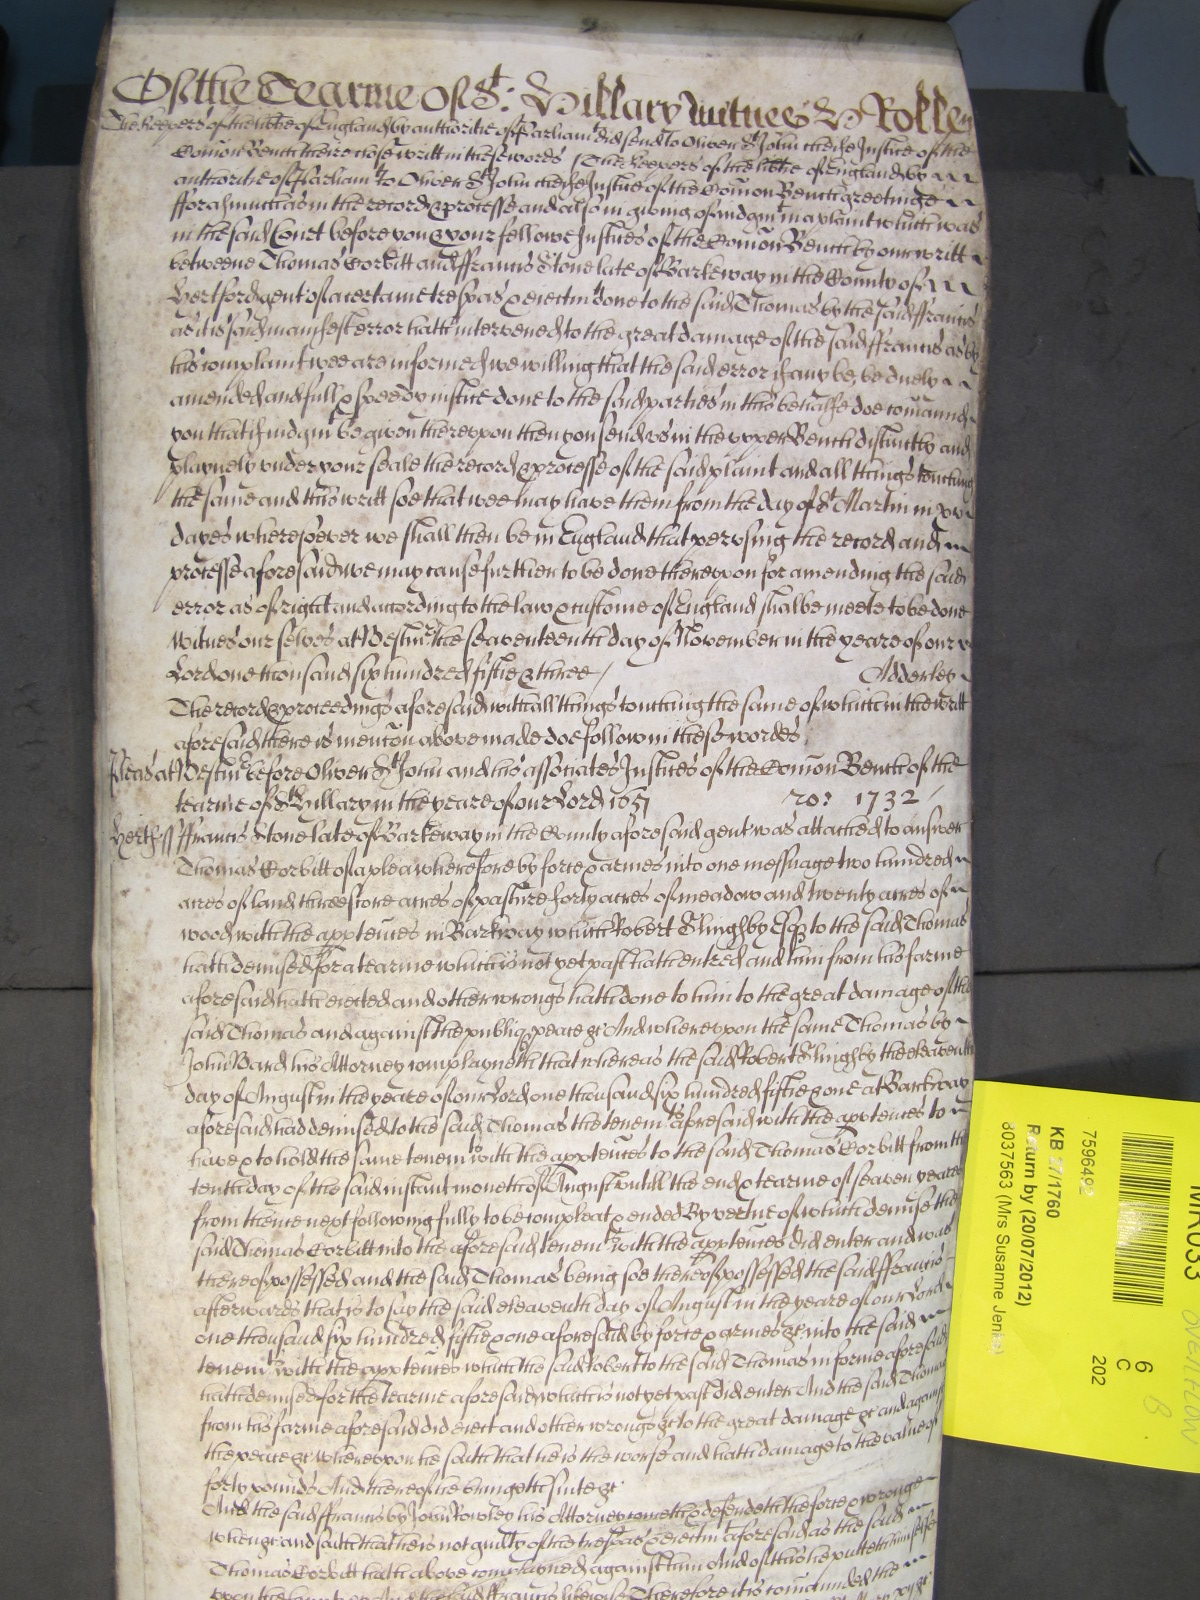 Of the Tearme of St: Hillary witnes H Rolle
The keepers of the libtie of England by authoritie of Parliamt did send to Oliver St John cheife Justice of the
Com̄on Bench theire close writt in these wordes The keepers of the libtie of England by
authoritie of Parliamt To Oliver St John cheife Justice of the Com̄on Bench greetinge
fforasmuch as in the record & processe and also in giving of iudgmt in a plaint which was
in the said Court before you & your fellowe Justices of the Com̄on Bench by our writt
betweene Thomas Corbitt and ffrancis Stone late of Barkeway in the County of
Hertford gent of a certaine trespas & eiectmt done to the said Thomas by the said ffrancis
as it is said manifest error hath intervened to the great damage of the said ffrancis as by
his complaint wee are informed we willing that the said error if any be, be duely
amended and full & speedy iustice done to the said parties in this behalfe doe com̄aund
you that if iudgmt be given thereupon then you send us in the upper Bench distinctly and
playnely under your seale the record & processe of the said plaint and all things touching
the same and this writt soe that wee may have them from the day of St Martin in xv
dayes wheresoever we shall then be in England that perusing the record and
processe aforesaid we may cause further to be done thereupon for amending the said
error as of right and according to the law & custome of England shalbe meete to be done
Witnes our selves at Westmr the seaventeenth day of November in the yeare of our
Lord one thousand six hundred fiftie & three / Adderley
The record & proceedings aforesaid with all things touching the same of which in the writt
aforesaid there is menc̄on above made doe follow in these wordes
Pleas at Westmr before Oliver St John and his associates Justices of the Com̄on Bench of the
tearme of St Hillary in the yeare of our Lord 1651 ro: 1732
Hertf ss ffrancis Stone late of Barkeway in the County aforesaid gent was attached to answer
Thomas Corbitt of a plea wherefore by force & armes into one messuage two hundred
acres of land threescore acres of pasture forty acres of meadow and twenty acres of
wood with the apptences in Barkway which Robert Slingsby Esqr to the said Thomas
hath demised for a tearme which is not yet past hath entred and him from his farme
aforesaid hath eiected and other wrongs hath done to him to the great damage of the
said Thomas and against the publiq peace &c And whereupon the same Thomas by
John Bard his Attorney complayneth that whereas the said Robert Slingsby the eleaventh
day of August in the yeare of our Lord one thousand six hundred fiftie & one at Barkway
aforesaid had demised to the said Thomas the tenemts aforesaid with the apptences to
have & to hold the same tenemts with the apptences to the said Thomas Corbitt from the
tenth day of the said instant moneth of August untill the end & tearme of seaven yeares
from thence next following fully to be compleat & ended By vertue of which demise the
said Thomas Corbitt into the aforesaid tenemts with the apptences did enter and was
thereof possessed and the said Thomas being soe thereof possessed the said ffrancis
afterwards that is to say the said eleaventh day of August in the yeare of our Lord
one thousand six hundred fiftie & one aforesaid by force & armes &c into the said
tenemts with the apptences which the said Robert to the said Thomas in forme aforesaid
hath demised for the tearme aforesaid which is not yet past did enter And the said Thomas
from his farme aforesaid did eiect and other wrongs &c to the great damage &c and against
the peace &c whereupon he saith that he is the worse and hath damage to the value of
forty pounds And thereof he bringeth suite &c
And the said ffrancis by John Rowley his Attorney cometh & defendeth the force & wronge
when &c and saith that he is not guilty of the trespas & eiectmt aforesaid as the said
Thomas Corbitt hath above complayned against him And of this he putteth himselfe
upon the Country And the said ffrancis likewise Therefore it is com̄aunded the
MR033
7596492
KB 27/1760
Return by (20/07/2012)
8037563 (Mrs Susanne Jen
6
C
202
8
OVERFLOW